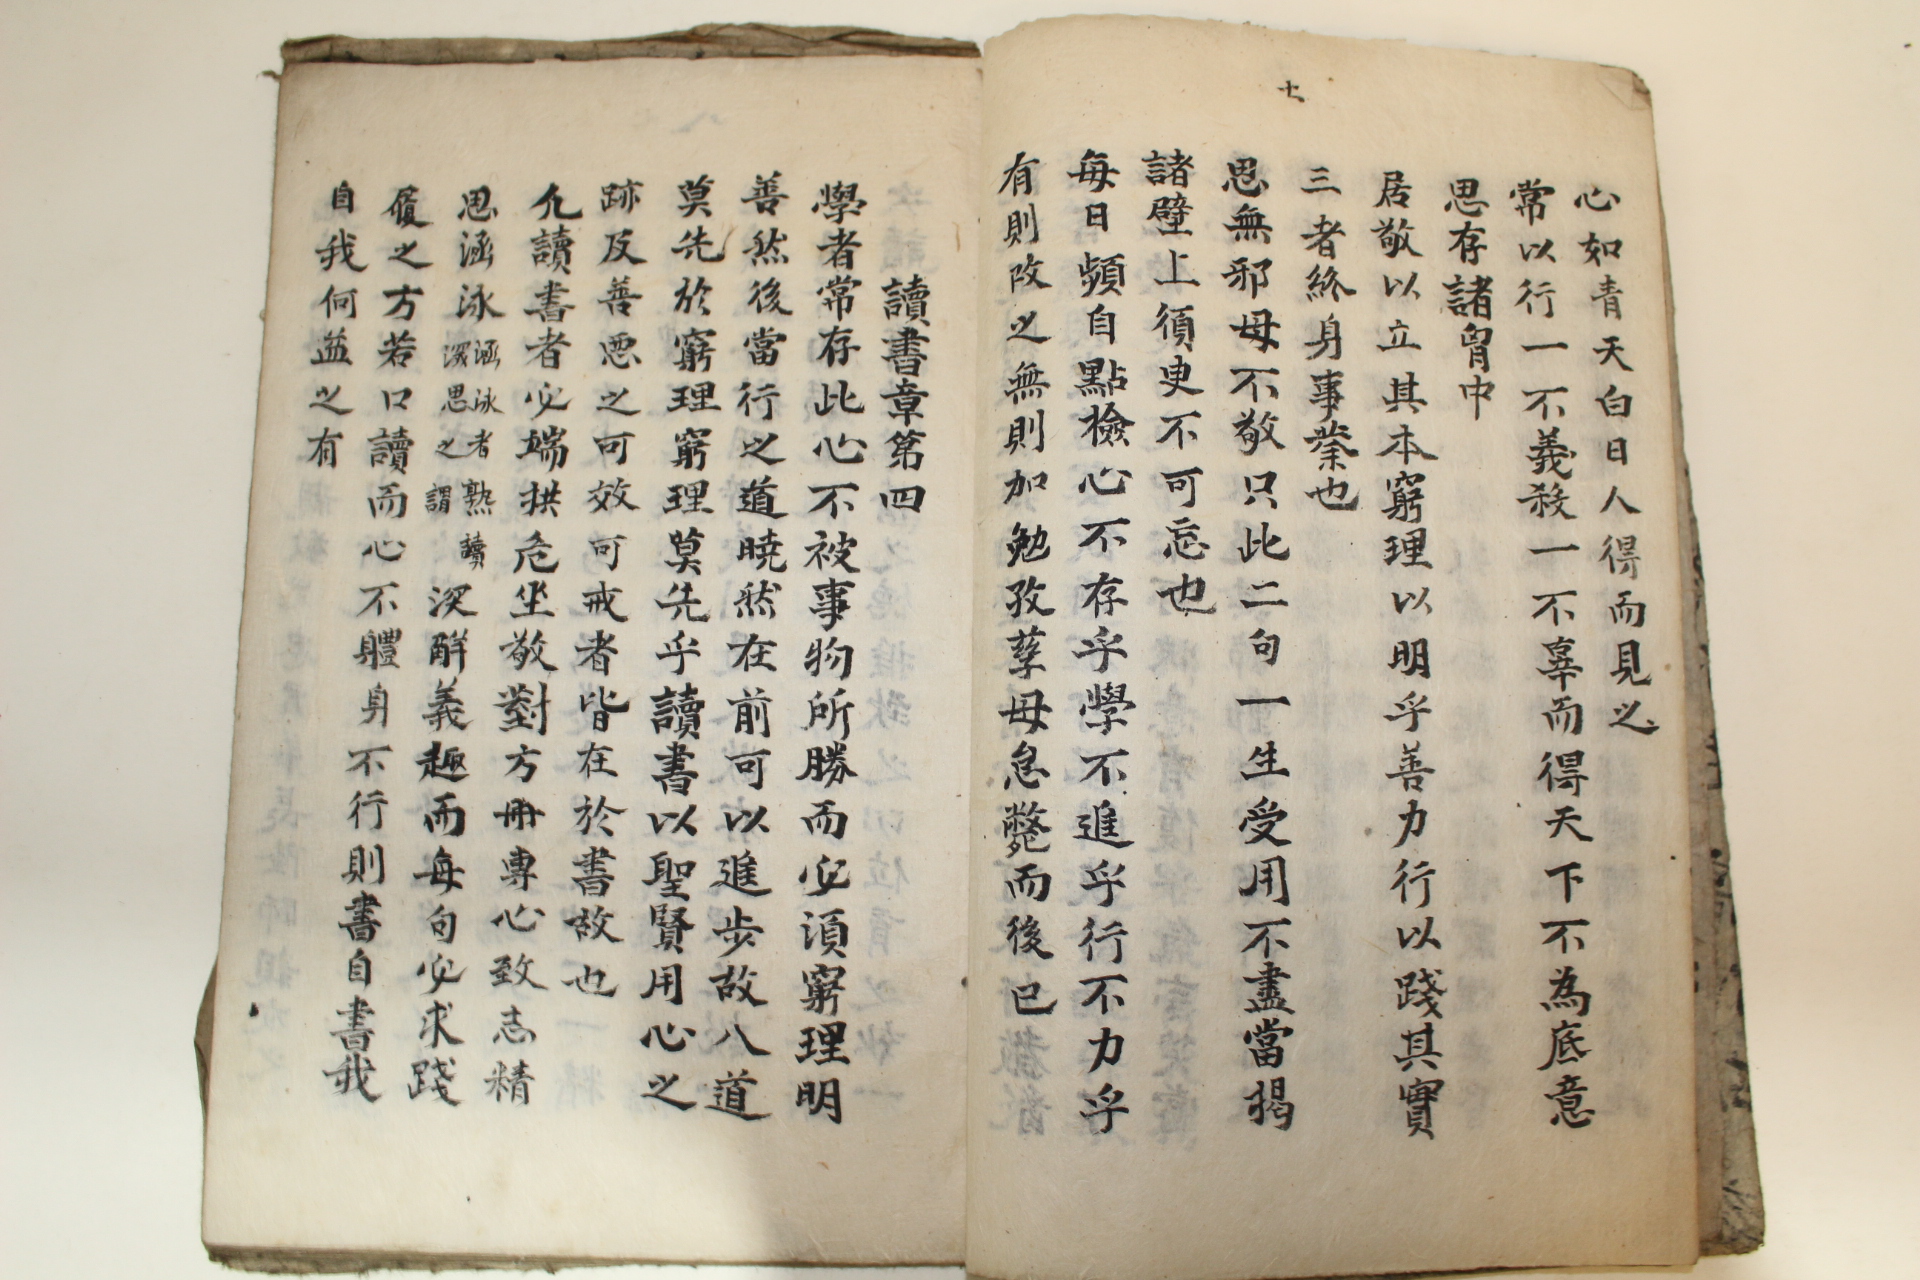 七
心如青天白日人得而見之
常以行一不義殺一不辜而得天下不為底意
思存諸胷中
居敬以立其本窮理以明乎善力行以踐其實
三者終身事業也
思無邪毋不敬只此二句一生受用不盡當揭
諸壁上須臾不可忘也
每日頻自點檢心不存乎學不進乎行不力乎
有則改之無則加勉孜孳毋怠斃而後已
讀書章第四
學者常存此心不被事物所勝而必須窮理明
善然後當行之道曉然在前可以進步故入道
莫先於窮理窮理莫先乎讀書以聖賢用心之
跡及善悪之可效可戒者皆在於書故也
凢讀書者必端拱危坐敬對方冊專心致志精
思涵泳
涵泳者熟讀
深思之謂
深觧義趣而每句必求踐
履之方若口讀而心不體身不行則書自書我
自我何益之有